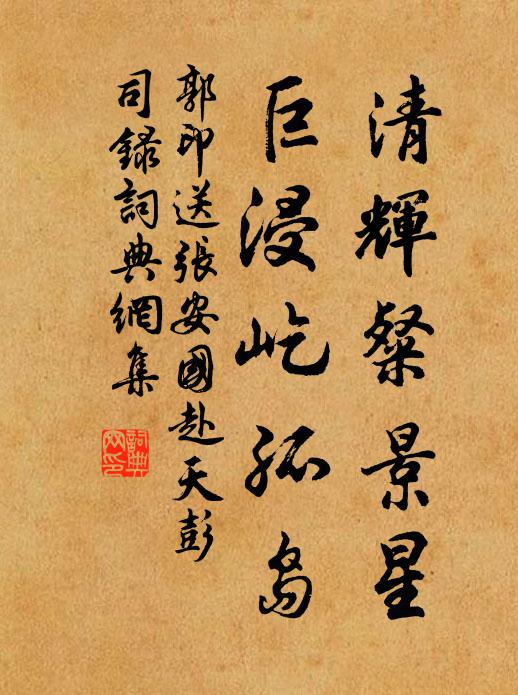 清輝粲景星
巨浸屹孤島
郭印送張安國赴天彭
司錄詞典網集
詞典
网印